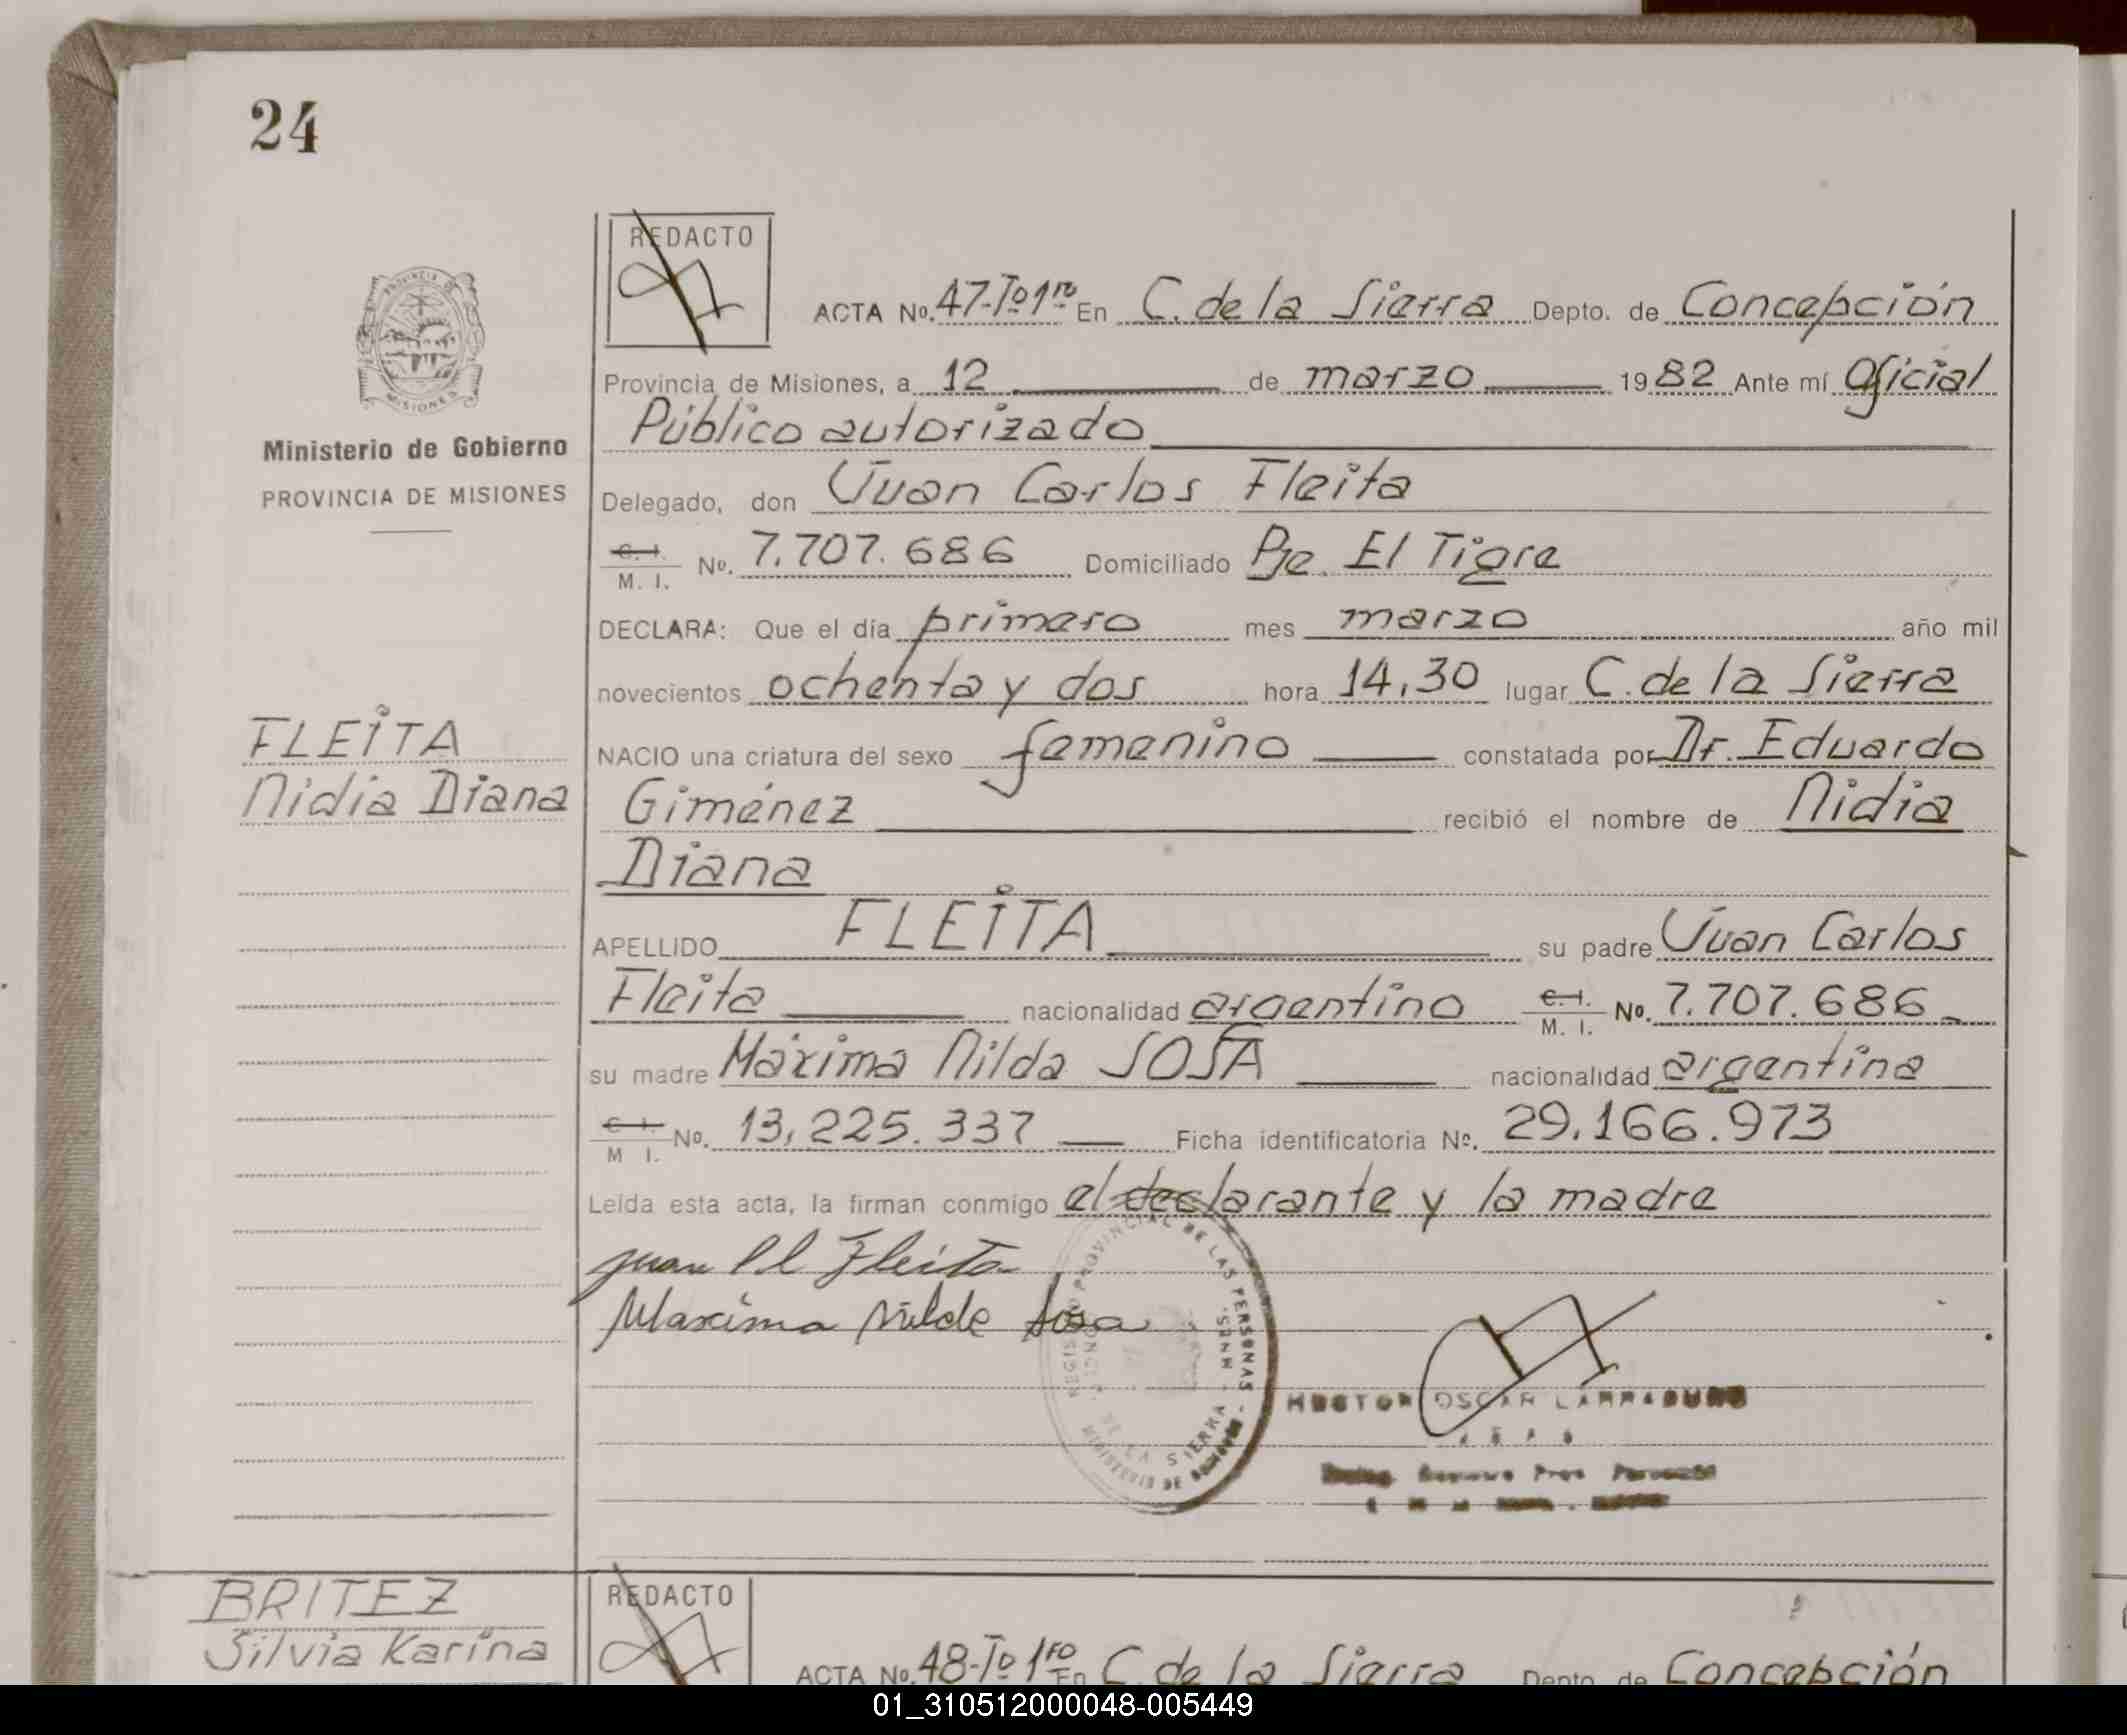 24
REDACTO
PROVINCIA DE
MISIONES
ACTA No. 47-Tº1ro En C. de la Sierra Depto. de Concepción
Provincia de Misiones, a 12 de marzo 1982 Ante mí Oficial
Público autorizado
Ministerio de Gobierno
PROVINCIA DE MISIONES
Delegado, don Juan Carlos Fleita
C. I. M. I. No. 7.707.686 Domiciliado Pje. El Tigre
DECLARA: Que el día primero mes marzo año mil
novecientos ochenta y dos hora 14,30 lugar C. de la Sierra
FLEITA
Nidia Diana
NACIO una criatura del sexo femenino constatada por Dr. Eduardo
Giménez recibió el nombre de Nidia
Diana
APELLIDO FLEITA su padre Juan Carlos
Fleita nacionalidad argentino C. I. M. I. No. 7.707.686
su madre Máxima Nilda SOSA nacionalidad argentina
C. I. M I. No. 13,225.337 Ficha identificatoria No. 29.166.973
Leída esta acta, la firman conmigo el declarante y la madre
Juan Fleita
Maxima Nilde Sosa
PROVINCIAL DE LAS PERSONAS
DE LA SIERRA - MNES.
MINISTERIO DE
HECTOR OSCAR
BRITEZ
Silvia Karina
REDACTO
ACTA No. 48-Tº1ro En C. de la Sierra Depto. de Concepción
01_310512000048-005449